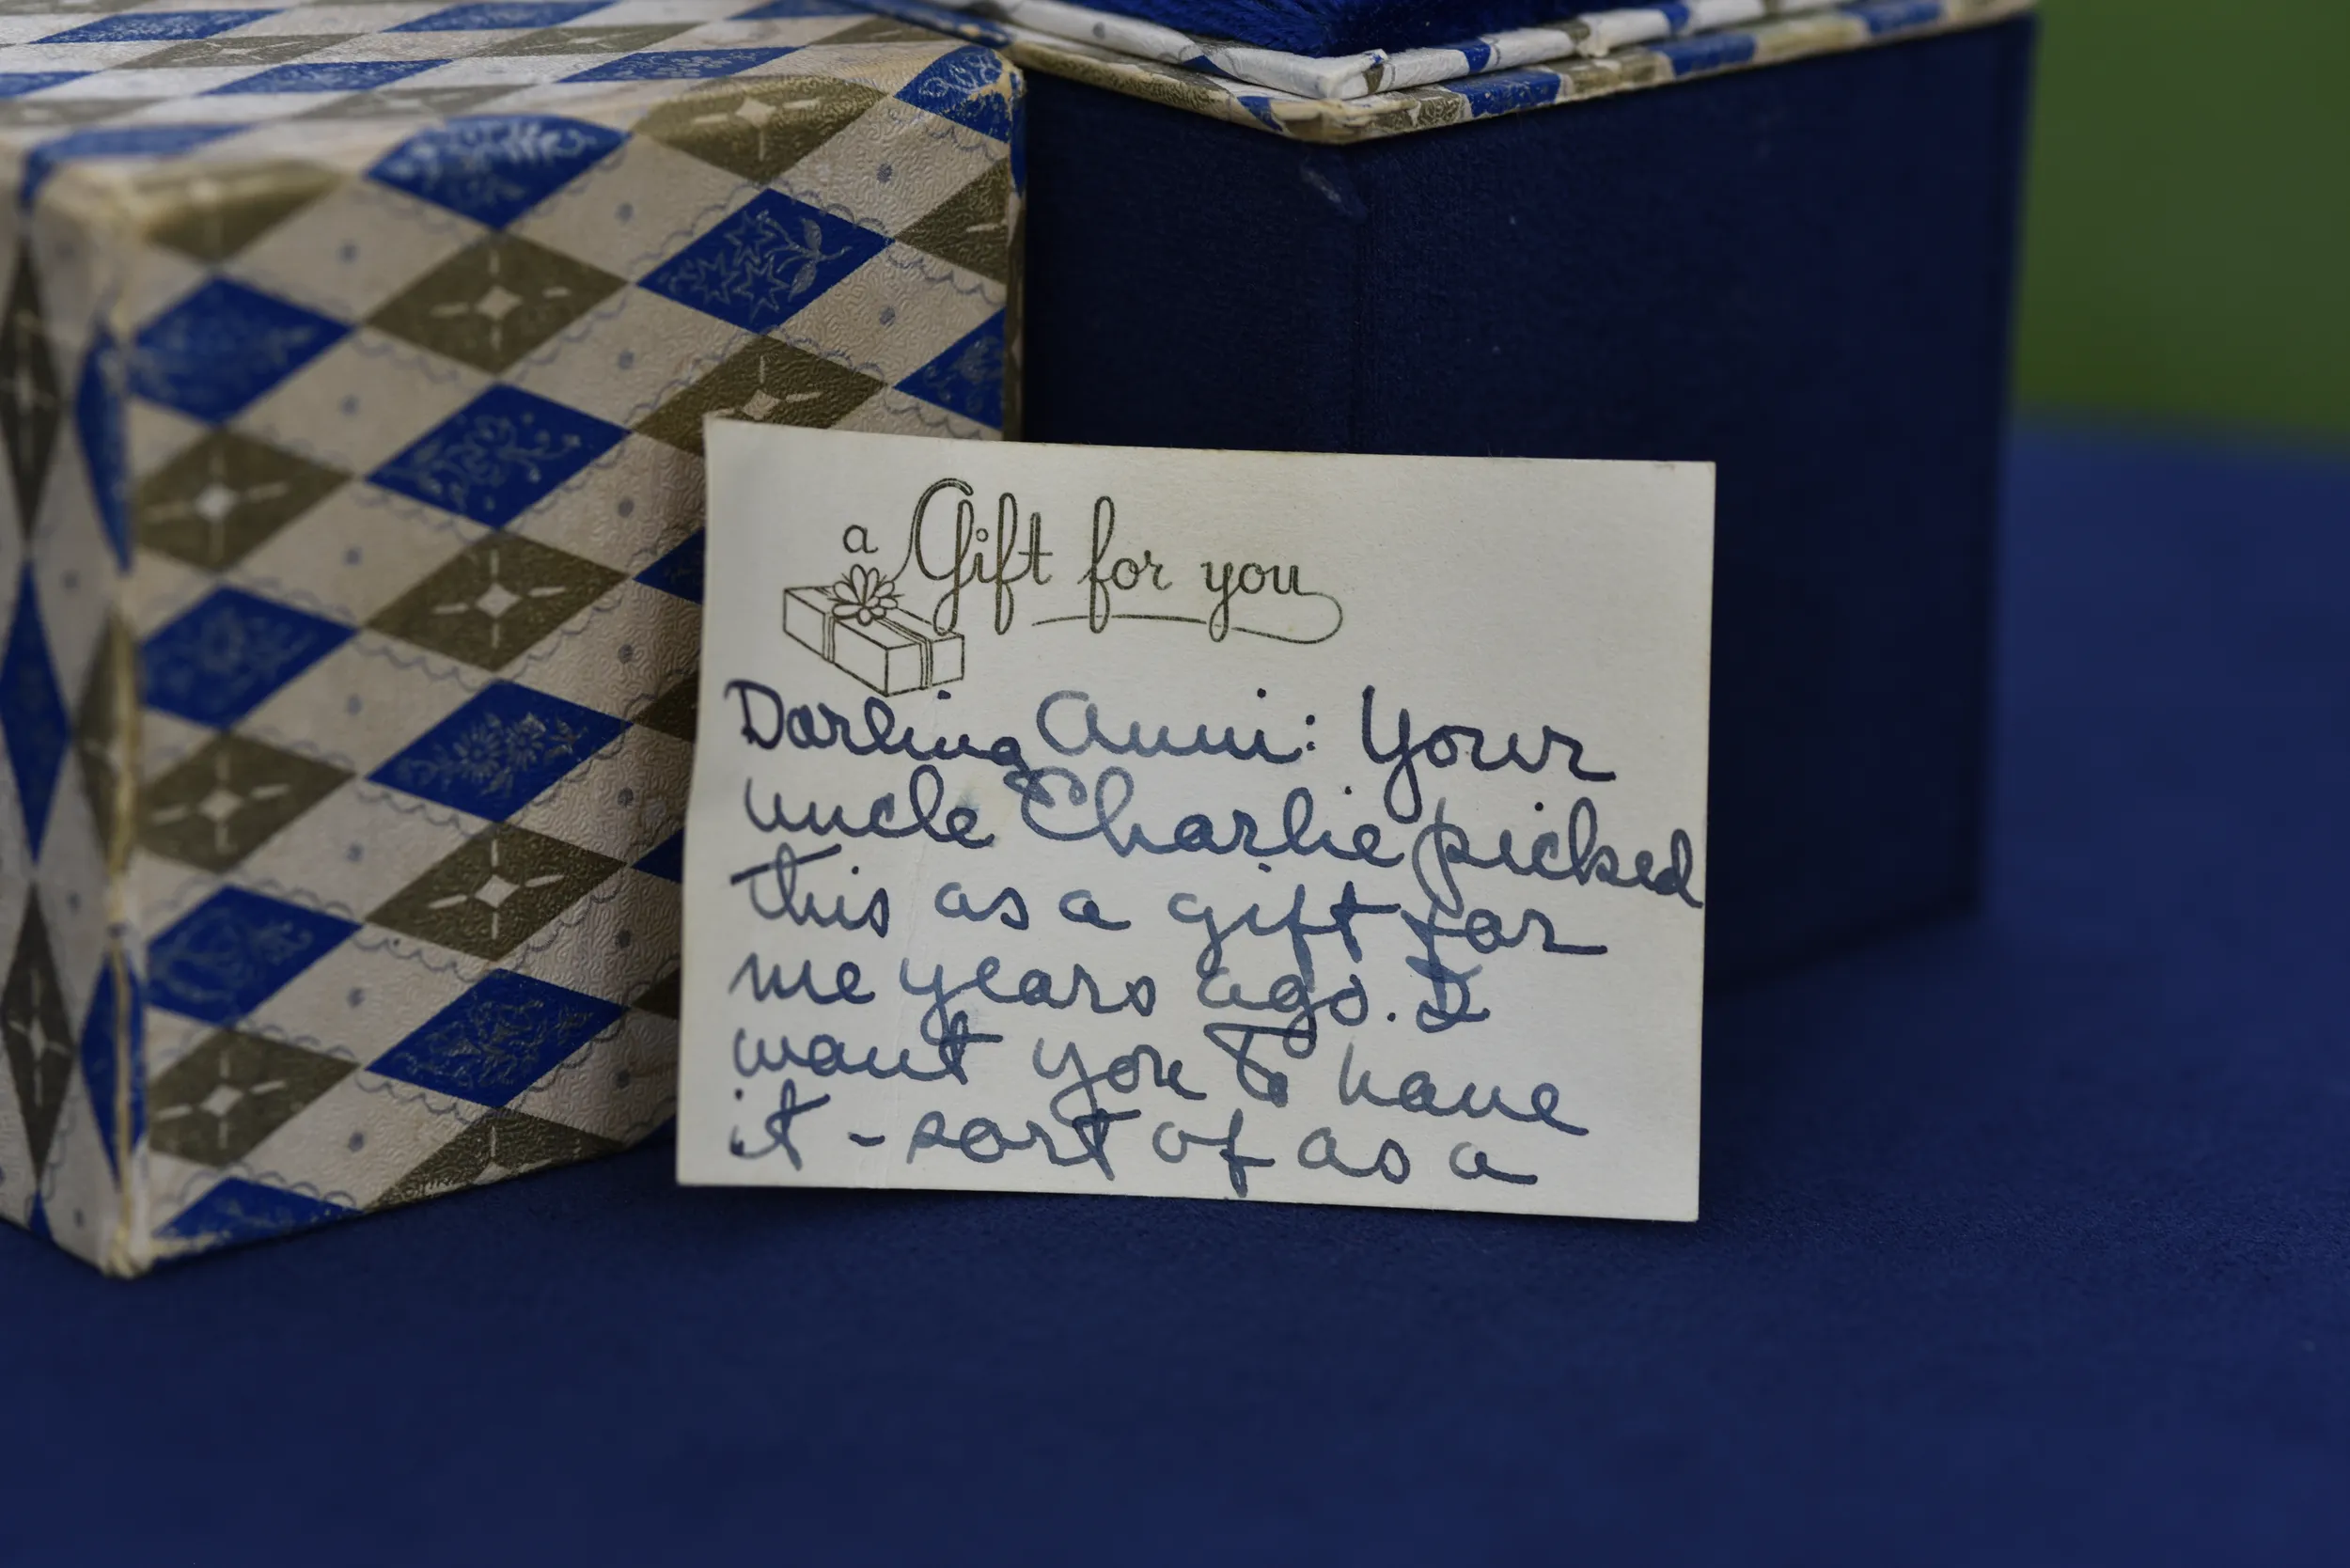 a Gift for you
Darling Anni: Your
uncle Charlie picked
this as a gift for
me years ago. I
want you to have
it - sort of as a